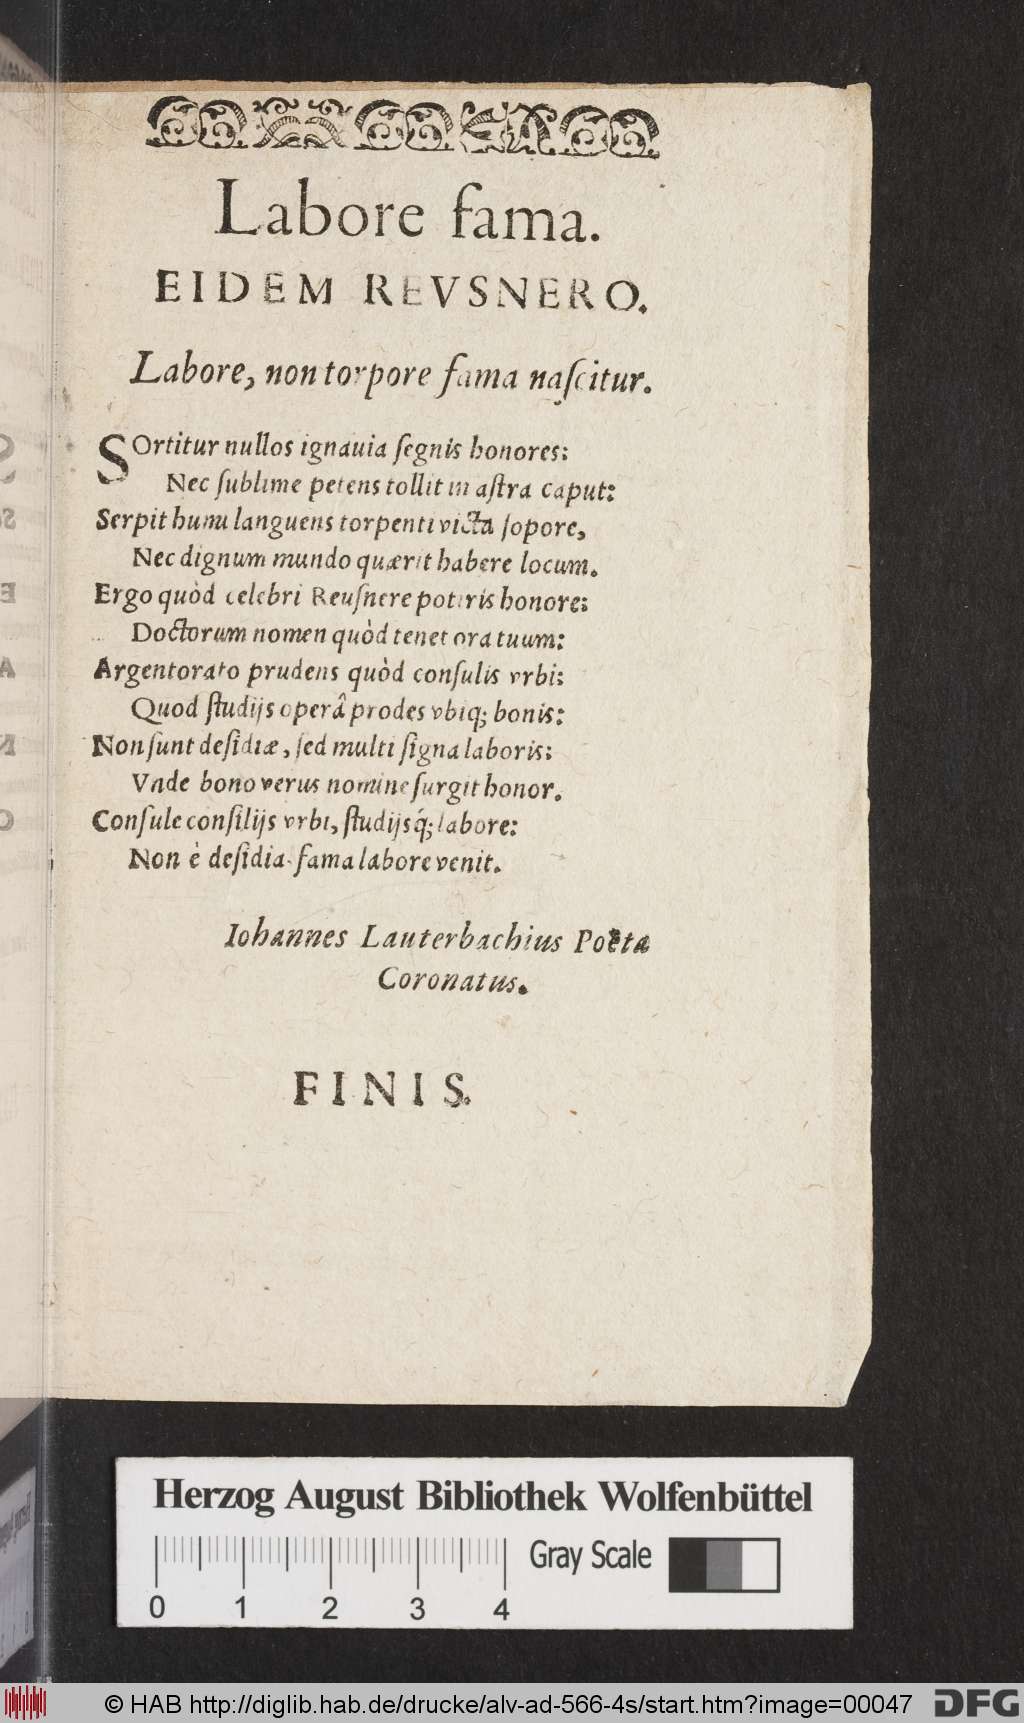 Labore fama.
EIDEM REVSNERO.
Labore, non torpore fama naſcitur.
SOrtitur nullos ignauia ſegnis honores:
Nec ſublime petens tollit in aſtra caput:
Serpit humi languens torpenti victa ſopore,
Nec dignum mundo quærit habere locum.
Ergo quòd celebri Reuſnere potiris honore:
Doctorum nomen quòd tenet ora tuum:
Argentorato prudens quòd conſulis vrbi:
Quod ſtudijs operâ prodes vbiq; bonis:
Non ſunt deſidiæ, ſed multi ſigna laboris:
Vnde bono verus nomine ſurgit honor.
Conſule conſilijs vrbi, ſtudijsq́; labore:
Non è deſidia fama labore venit.
Iohannes Lauterbachius Poëta
Coronatus.
FINIS.
Herzog August Bibliothek Wolfenbüttel
Gray Scale
0 1 2 3 4
© HAB http://diglib.hab.de/drucke/alv-ad-566-4s/start.htm?image=00047 DFG